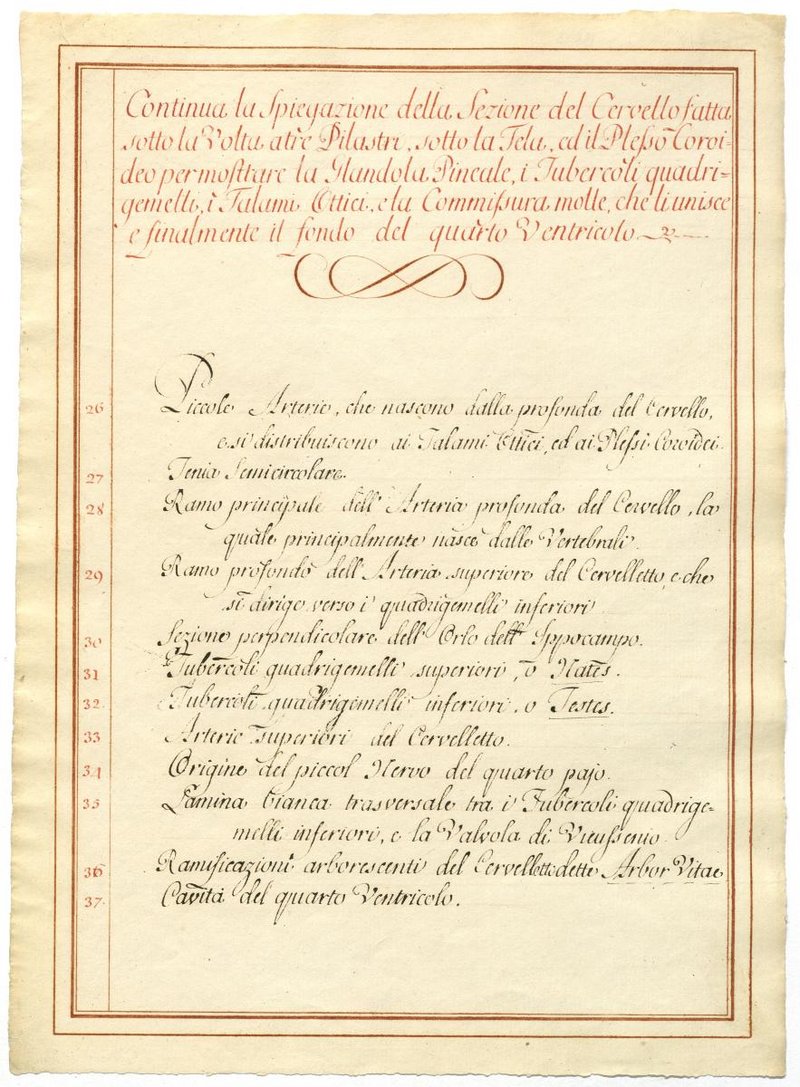 Continua la Spiegazione della Sezione del Cervello fatta
sotto la Volta a tre Pilastri, sotto la Tela, ed il Plesso Coroi-
deo per mosttare la Glandola Pineale, i Tubercoli quadri-
gemelli, i Talami Ottici, e la Commissura molle, che li unisce
e finalmente il fondo del quarto Ventricolo.
26 Piccole Arterie, che nascono dalla profonda del Cervello,
e si distribuiscono ai Talami Ottici, ed ai Plessi Coroidei.
27 Tenia Semicircolare.
28 Ramo principale dell'Arteria profonda del Cervello, la
quale principalmente nasce dalle Vertebrali.
29 Ramo profondo dell'Arteria superiore del Cervelletto, e che
si dirige verso i quadrigemelli inferiori
30 Sezione perpendicolare dell'Orlo dell'Ippocampo.
31 Tubercoli quadrigemelli superiori, o Nates.
32 Tubercoli quadrigemelli inferiori, o Testes.
33 Arterie superiori del Cervelletto.
34 Origine del piccol Nervo del quarto pajo.
35 Lamina bianca trasversale tra i Tubercoli quadrige-
melli inferiori, e la Valvola di Vieussenio
36 Ramificazioni arborescenti del Cervelletto dette Arbor Vitae
37. Cavità del quarto Ventricolo.